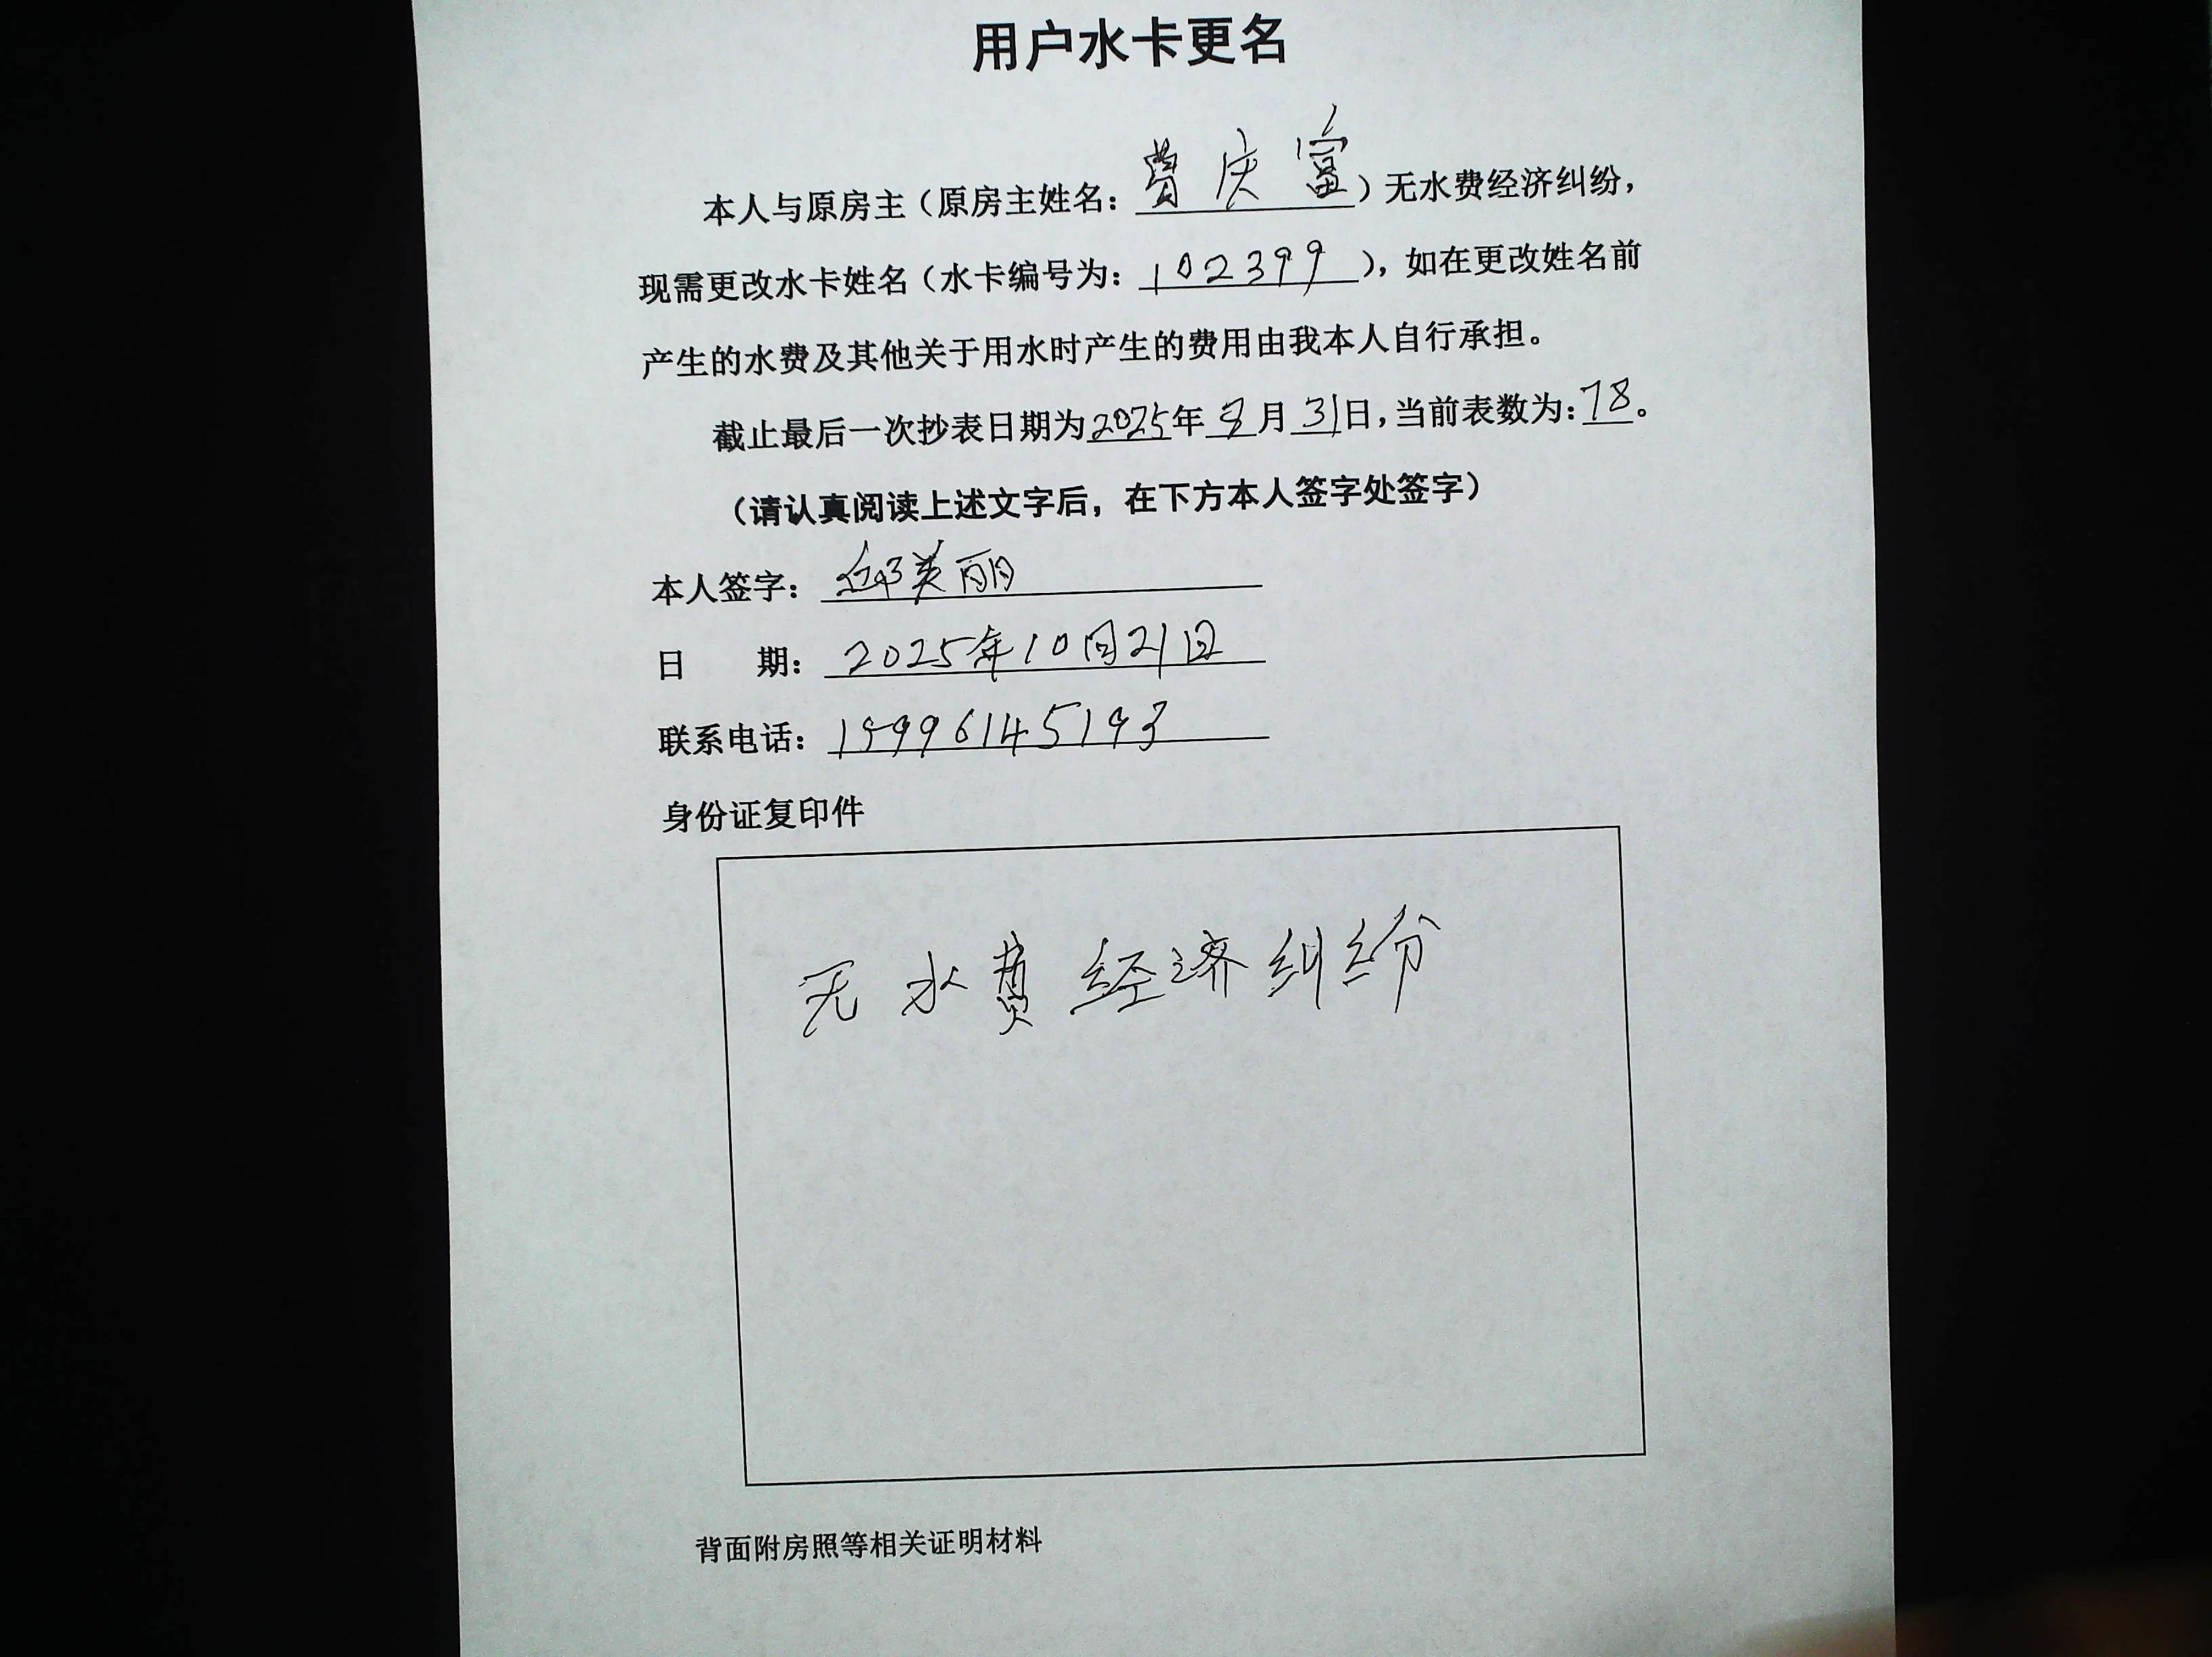 用户水卡更名
本人与原房主（原房主姓名：费庆富）无水费经济纠纷，
现需更改水卡姓名（水卡编号为：102399），如在更改姓名前
产生的水费及其他关于用水时产生的费用由我本人自行承担。
截止最后一次抄表日期为2025年8月31日，当前表数为：78。
（请认真阅读上述文字后，在下方本人签字处签字）
本人签字：邱美丽
日 期：2025年10月21日
联系电话：
身份证复印件
无水费经济纠纷
背面附房照等相关证明材料